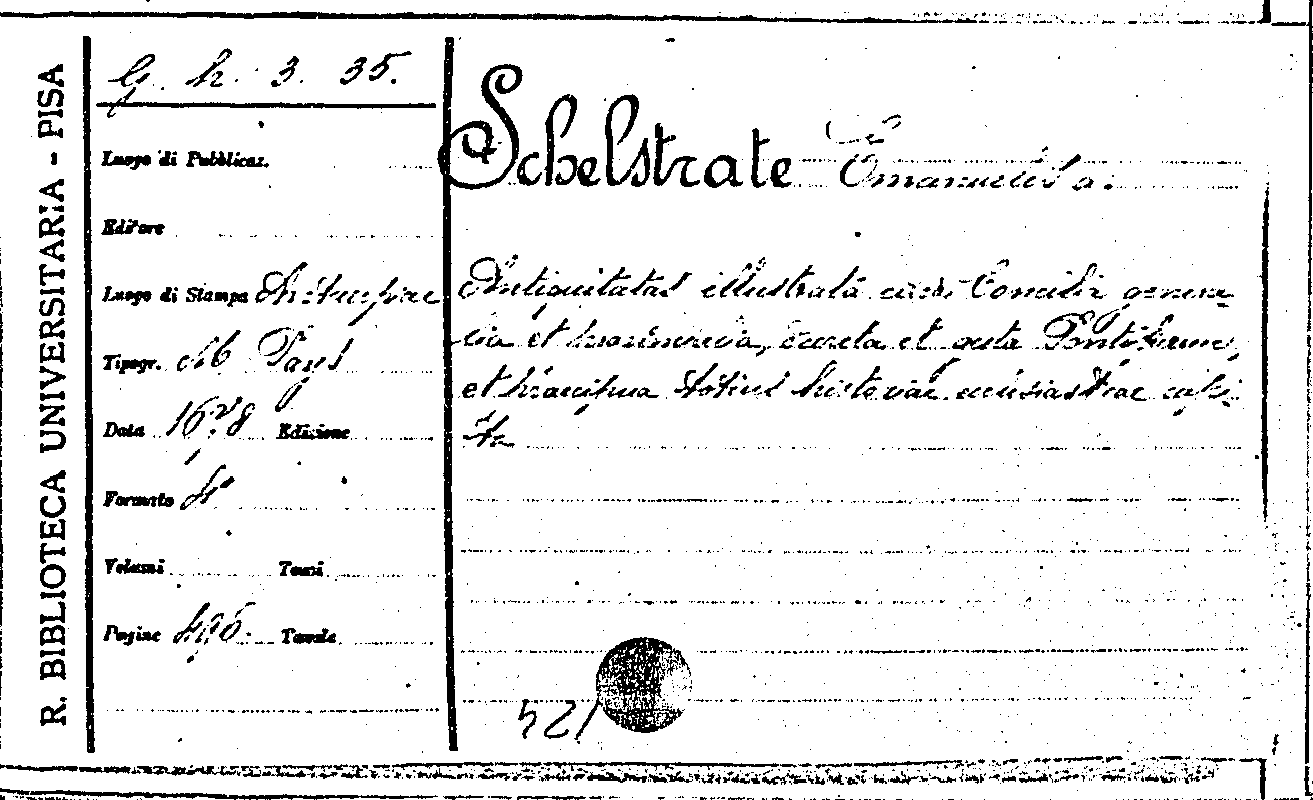 R. BIBLIOTECA UNIVERSITARIA - PISA
G. h. 3. 35.
Luogo di Pubblicaz.
Editore
Luogo di Stampa Antuerpiae
Tipogr. Ab Pays
Data 1678 Edizione
Formato 4°
Volumi Tomi
Pagine 496. Tavole
Schelstrate Emanuelis a.
Antiquitatas illustrata circa Concilia genera-
lia et provincialia, decreta et gesta Pontificum,
et praecipua totius historiae ecclesiasticae capi-
ta